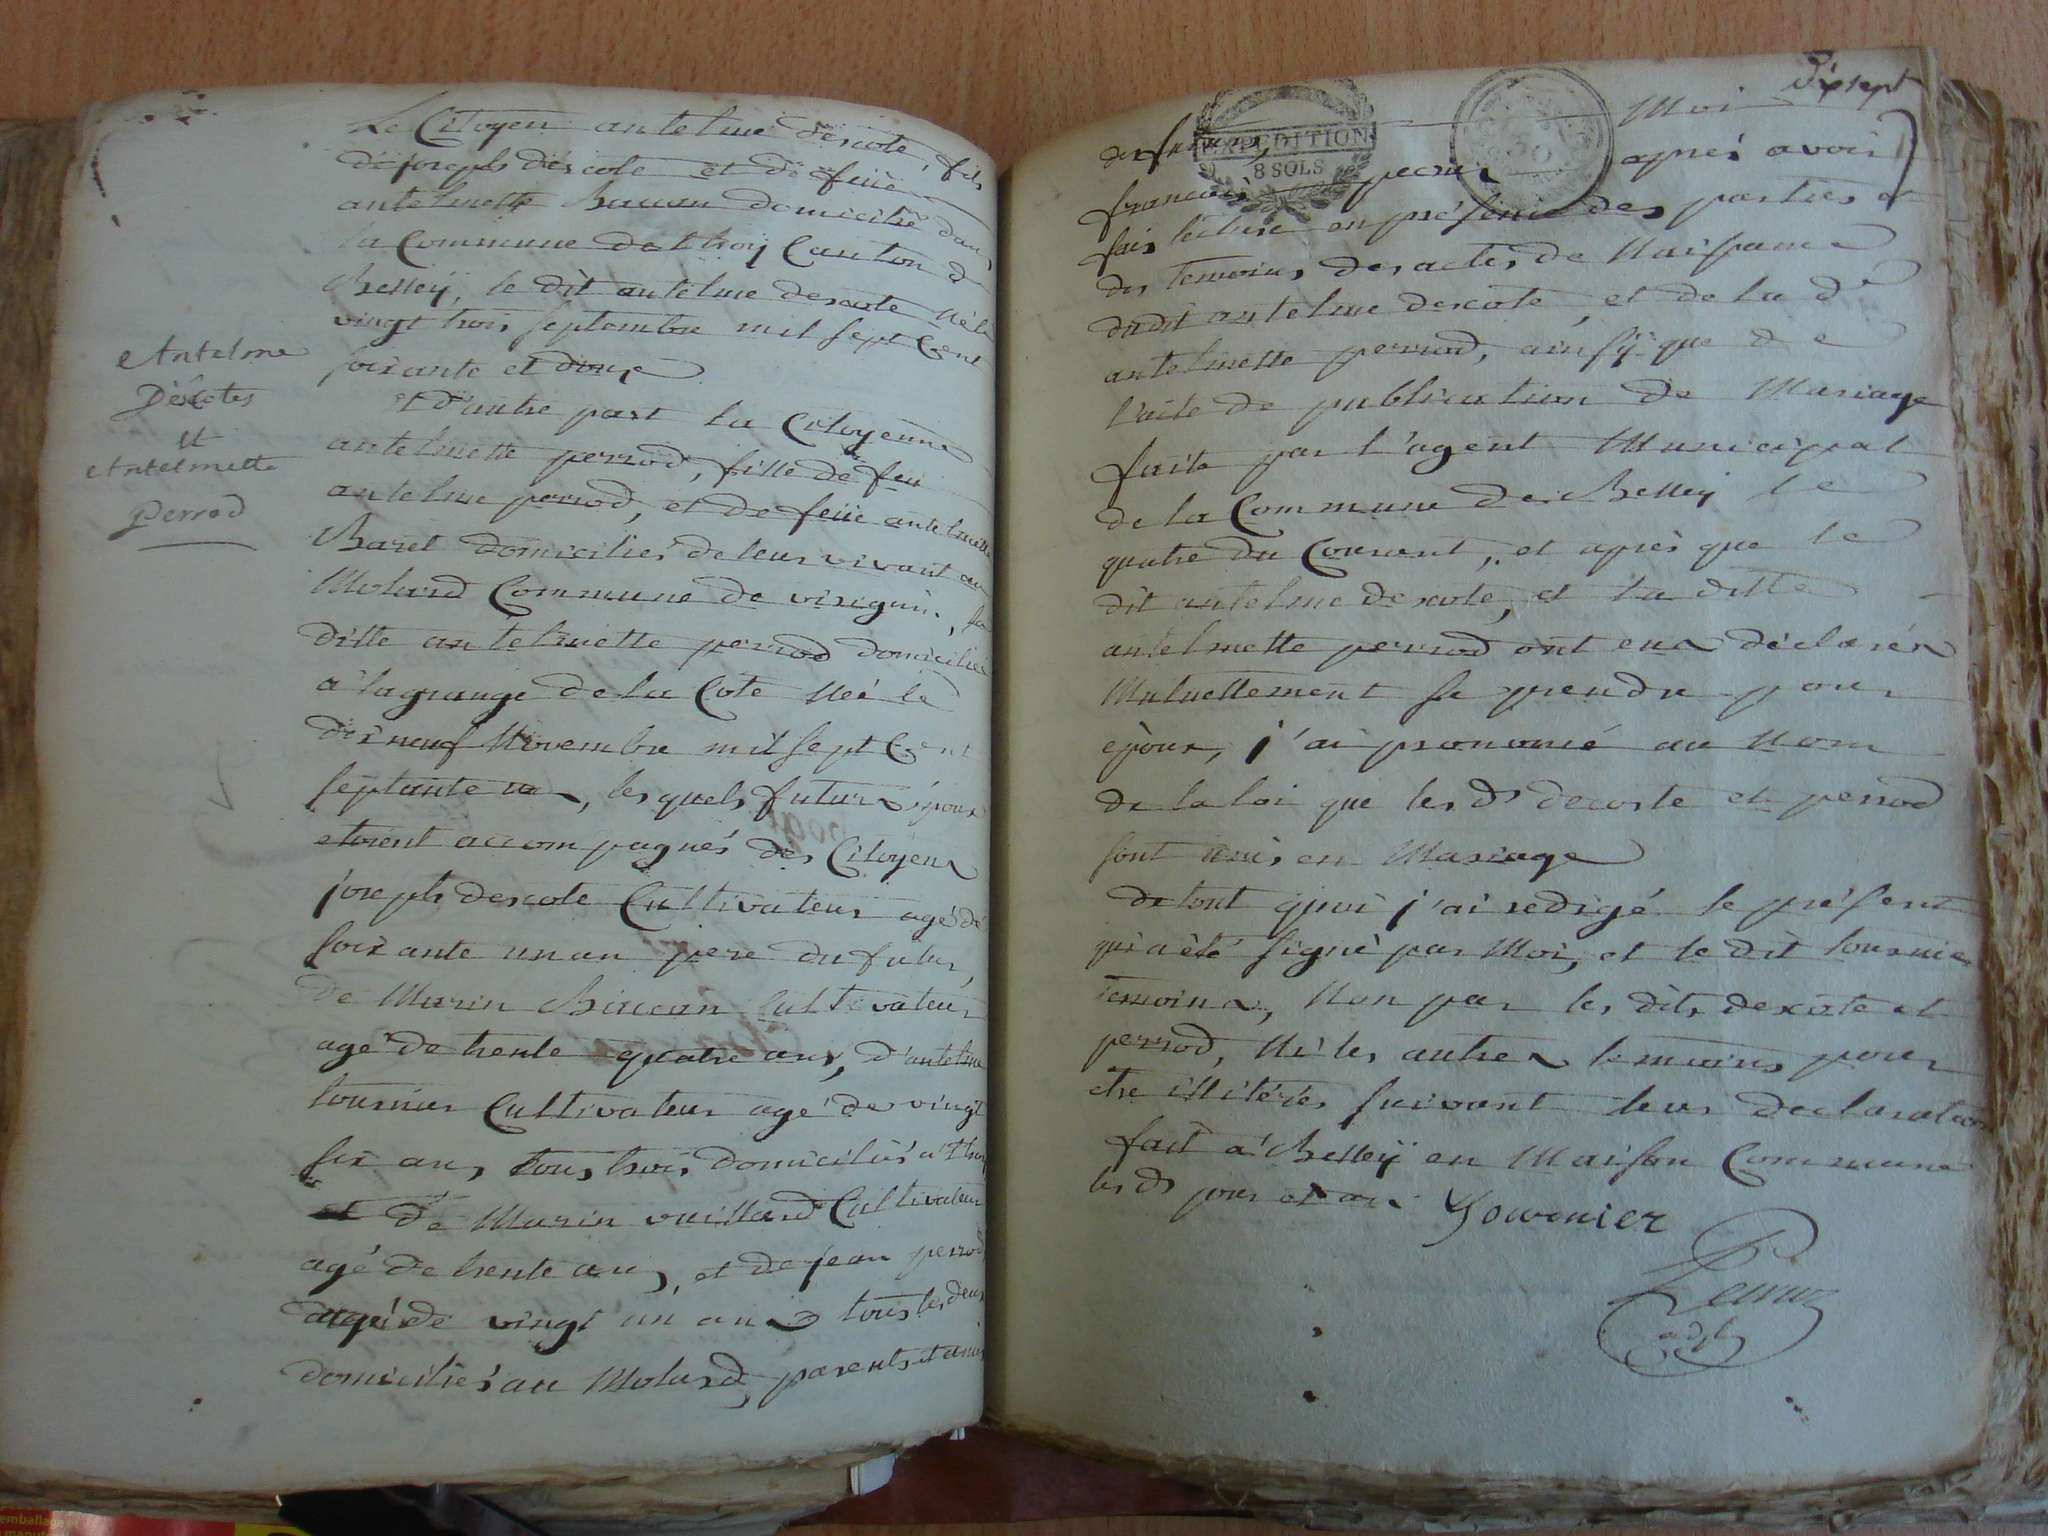 Le Citoyen antelme descote, fils
de joseph descote et de feüe
antelmette Baccon domicilié dans
la Commune de thoÿ Canton de
Belleÿ, le dit antelme descote né le
vingt trois septembre mil sept Cent
soixante et douze
et d'autre part la Citoyenne
antelmette perrod, fille de feu
antelme perrod, et de feüe antelmette
Baret domiciliés de leur vivant au
Molard Commune de virignin, la
ditte antelmette perrod domiciliée
a lagrange de la Cote Neé le
dix neuf Novembre mil sept Cent
septante un, lesquels futurs époux
etoient accompagnés des Citoyens
joseph descote Cultivateur agé de
soixante un an pere du futur,
de Marin Baccon Cultivateur
agé de trente quatre ans, d'antelme
tournier Cultivateur agé de vingt
six ans, tous trois domiciliés a thoÿ
et de Marin vuillard Cultivateur
agé de trente ans, et de jean perrod
agé de vingt un ans tous les deux
domiciliés au Molard, parents et amis
Antelme
Descotes
et
Antelmette
Perrod
Dixsept
des futurs, Moi
françois après avoir
fais lecture en présence des parties et
des temoins, des actes de Naissance
dudit antelme descote, et de la de
antelmette perrod, ainsÿ que de
l'acte de publication de Mariage
faite par l'agent Municipal
de la Commune de Belleÿ le
quatre du Courant, et après que le
dit antelme descote, et la ditte
antelmette perrod ont eux déclarés
Mutuellement se prendre pour
epoux, j'ai prononcé au Nom
de la loi que les ds decoste et perrod
sont unis en Mariage
de tout quoi j'ai redigé le présent
qui a été signé par Moi, et le dit tournier
temoins, Non par les dits descote et
perrod, Ni les autres temoins pour
etre illitérés suivant leur declaration
fait a Belleÿ en Maison Commune
les ds jour et an Tournier
EXPEDITION
8 SOLS